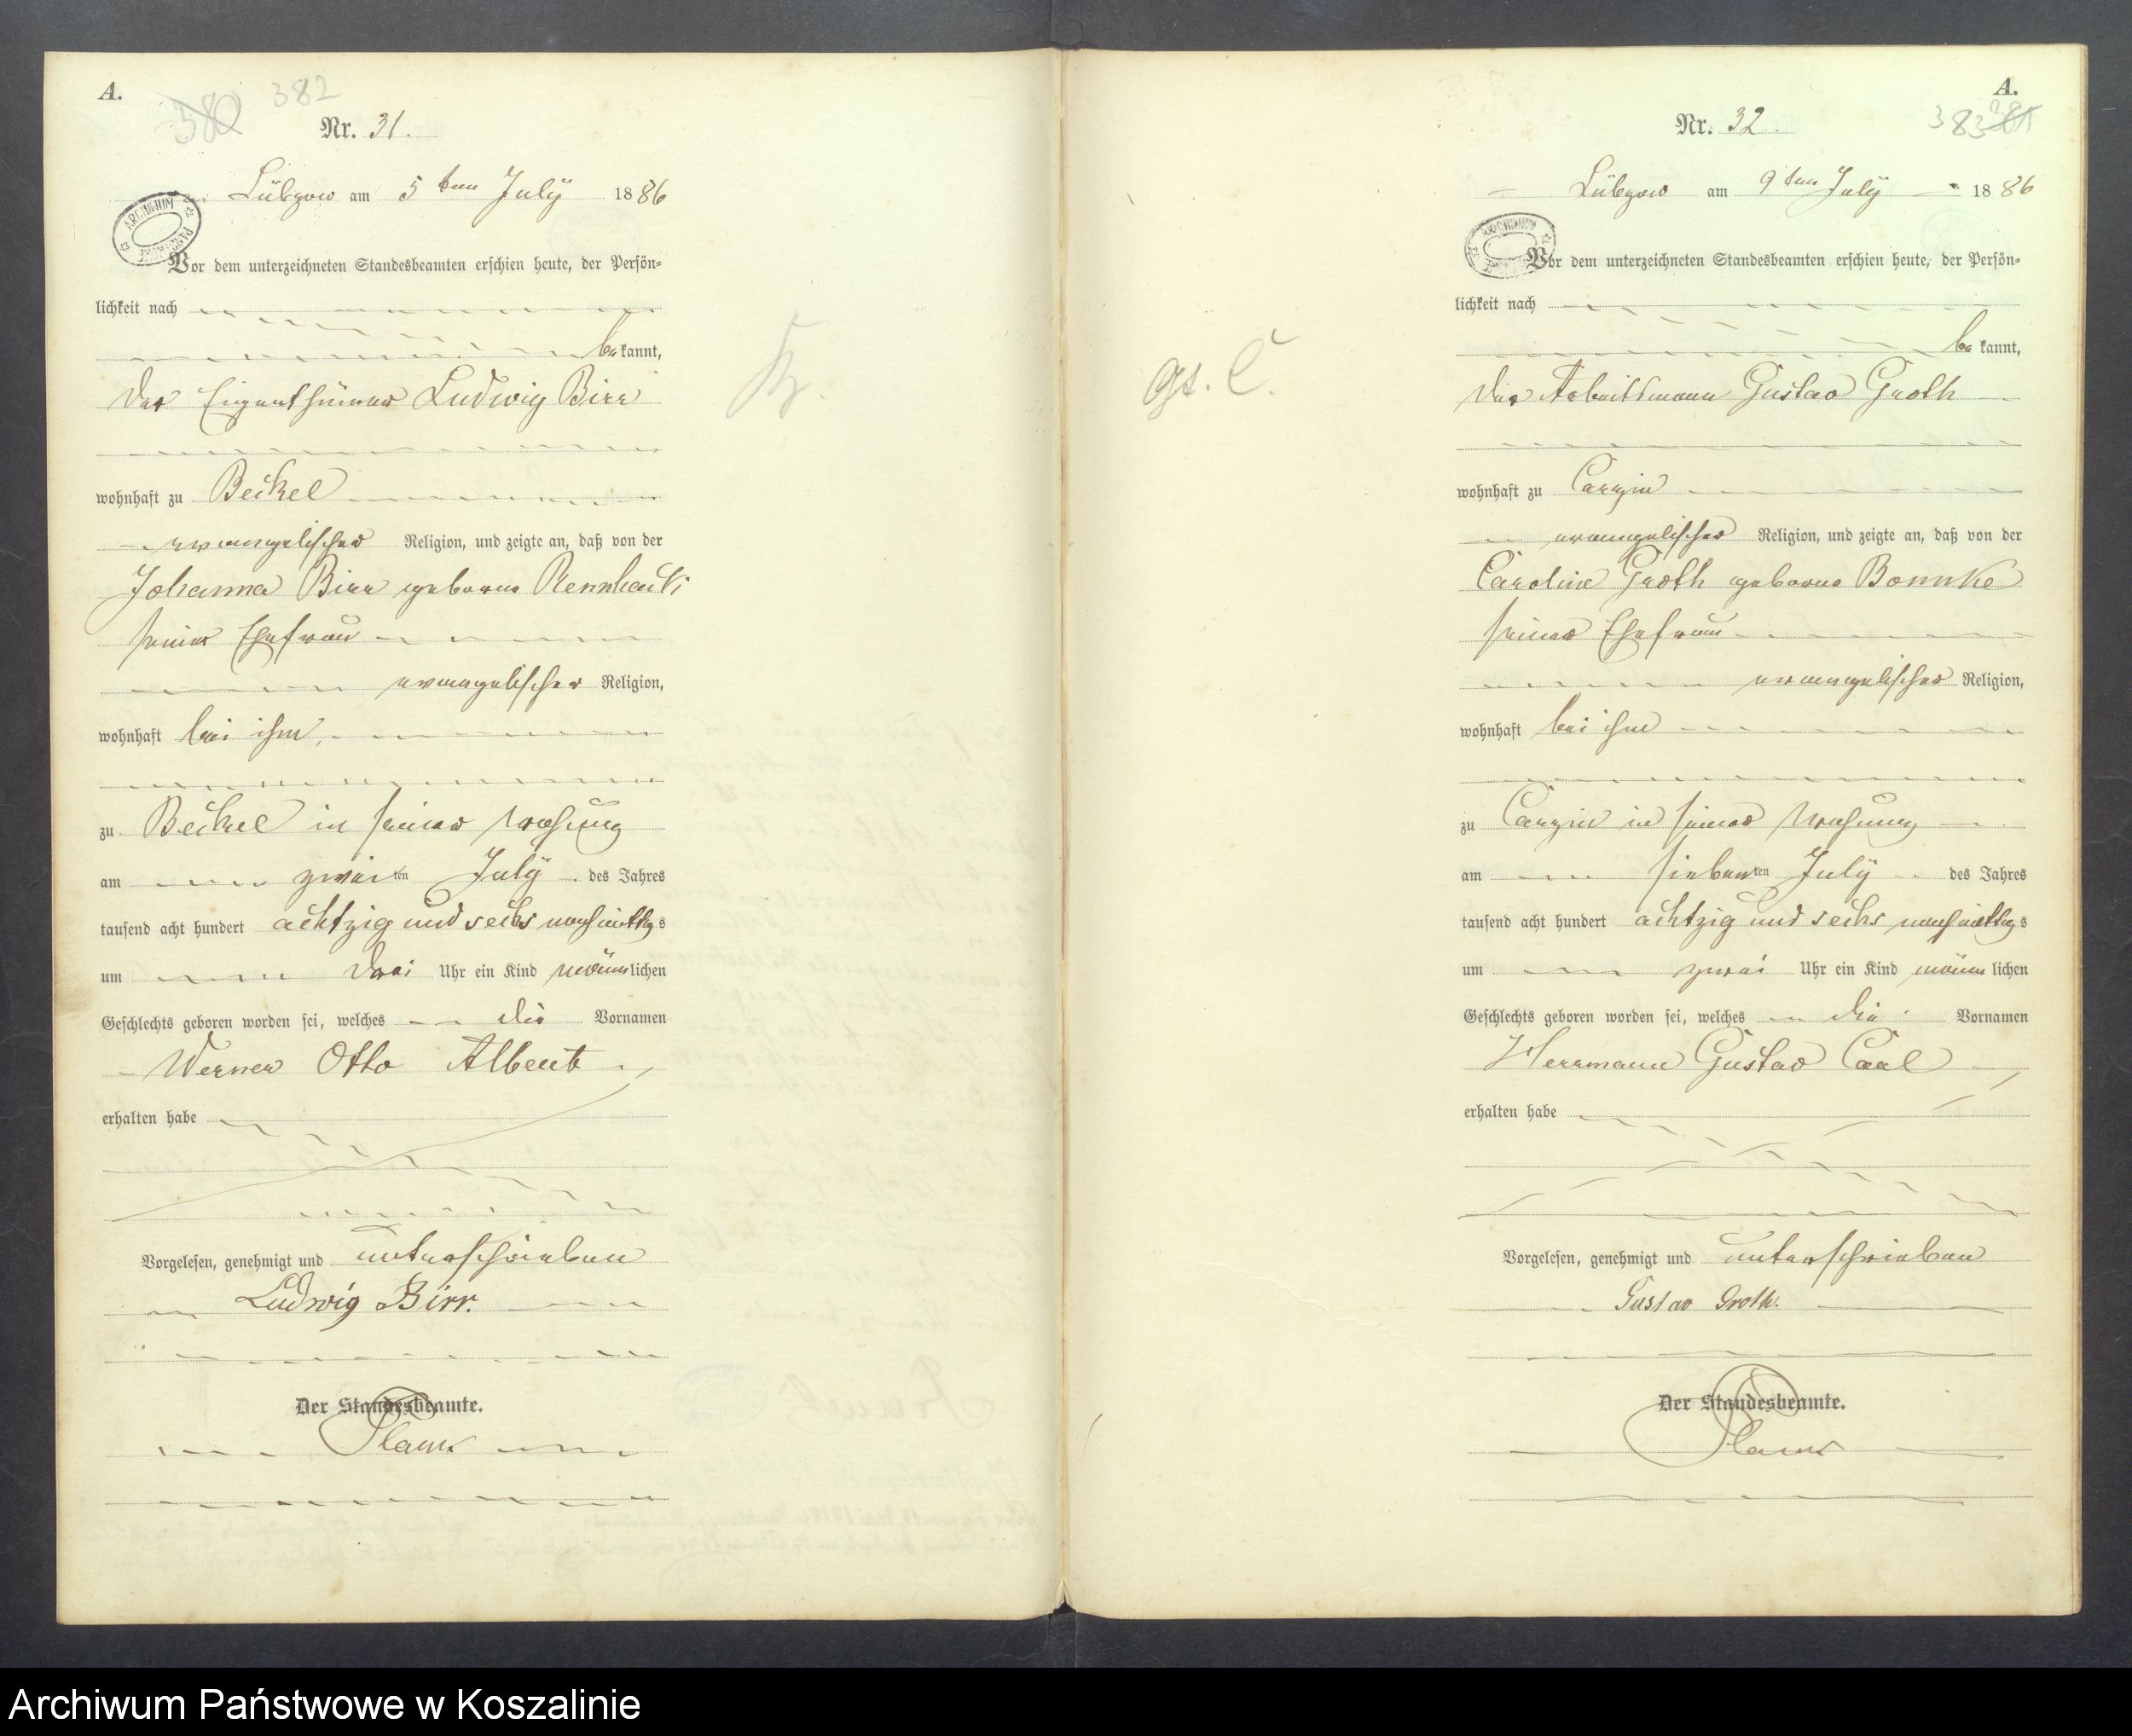 A.
380 382
Nr. 31.
Lübzow am 5 ten July 1886
ARCHIWUM
Vor dem unterzeichneten Standesbeamten erschien heute, der Persön-
lichkeit nach
be kannt,
der Eigenthümer Ludwig Birr
wohnhaft zu Beckel
evangelischer Religion, und zeigte an, daß von der
Johanna Birr geborene
seiner Ehefrau
evangelischer Religion,
wohnhaft bei ihm,
zu Beckel in seiner Wohnung
am zweiten July des Jahres
tausend acht hundert achtzig und sechs nachmittags
um drei Uhr ein Kind männlichen
Geschlechts geboren worden sei, welches die Vornamen
Werner Otto Albert
erhalten habe
Vorgelesen, genehmigt und unterschrieben
Ludwig Birr.
Der Standesbeamte.
A.
Nr. 32. 383
Lübzow am 9 ten July 1886
Vor dem unterzeichneten Standesbeamten erschien heute, der Persön-
lichkeit nach
be kannt,
der Arbeitsmann Gustav Groth
wohnhaft zu Carzin
evangelischer Religion, und zeigte an, daß von der
Caroline Groth geborene Bonnke
seiner Ehefrau
evangelischer Religion,
wohnhaft bei ihm
zu Carzin in seiner Wohnung
am siebenten July des Jahres
tausend acht hundert achtzig und sechs nachmittags
um zwei Uhr ein Kind männlichen
Geschlechts geboren worden sei, welches die Vornamen
Herrmann Gustav Carl
erhalten habe
Vorgelesen, genehmigt und unterschrieben
Gustav Groth.
Der Standesbeamte.
Archiwum Państwowe w Koszalinie